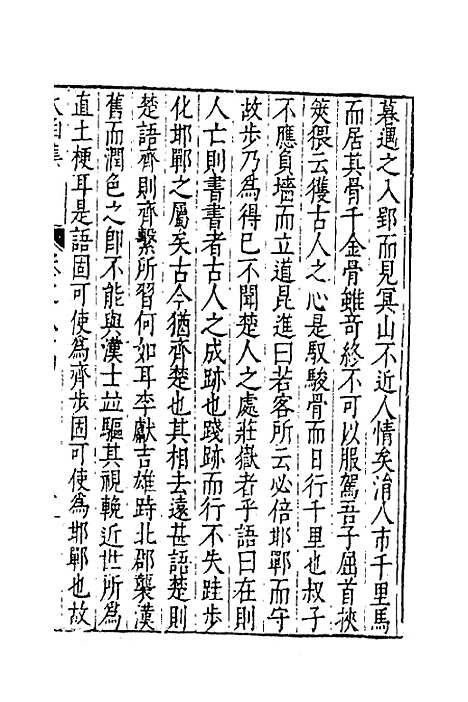 暮遇之入郢而見冥山不近人情矣涓人市千里馬
而居其骨千金骨雖竒終不可以服駕吾子屈首挾
筴猥云獲古人之心是馭駿骨而日行千里也叔子
不應負墻而立道昆進曰若客所云必倍邯鄲而守
故步乃為得已不聞楚人之處莊嶽者乎語曰在則
人亡則書書者古人之成跡也踐跡而行不失跬步
化邯鄲之屬矣古今猶齊楚也其相去遠甚語楚則
楚語齊則齊繫所習何如耳李獻吉雄跱北郡襲漢
舊而潤色之即不能與漢士並驅其視輓近世所為
直土梗耳是語固可使為齊步固可使為邯鄲也故